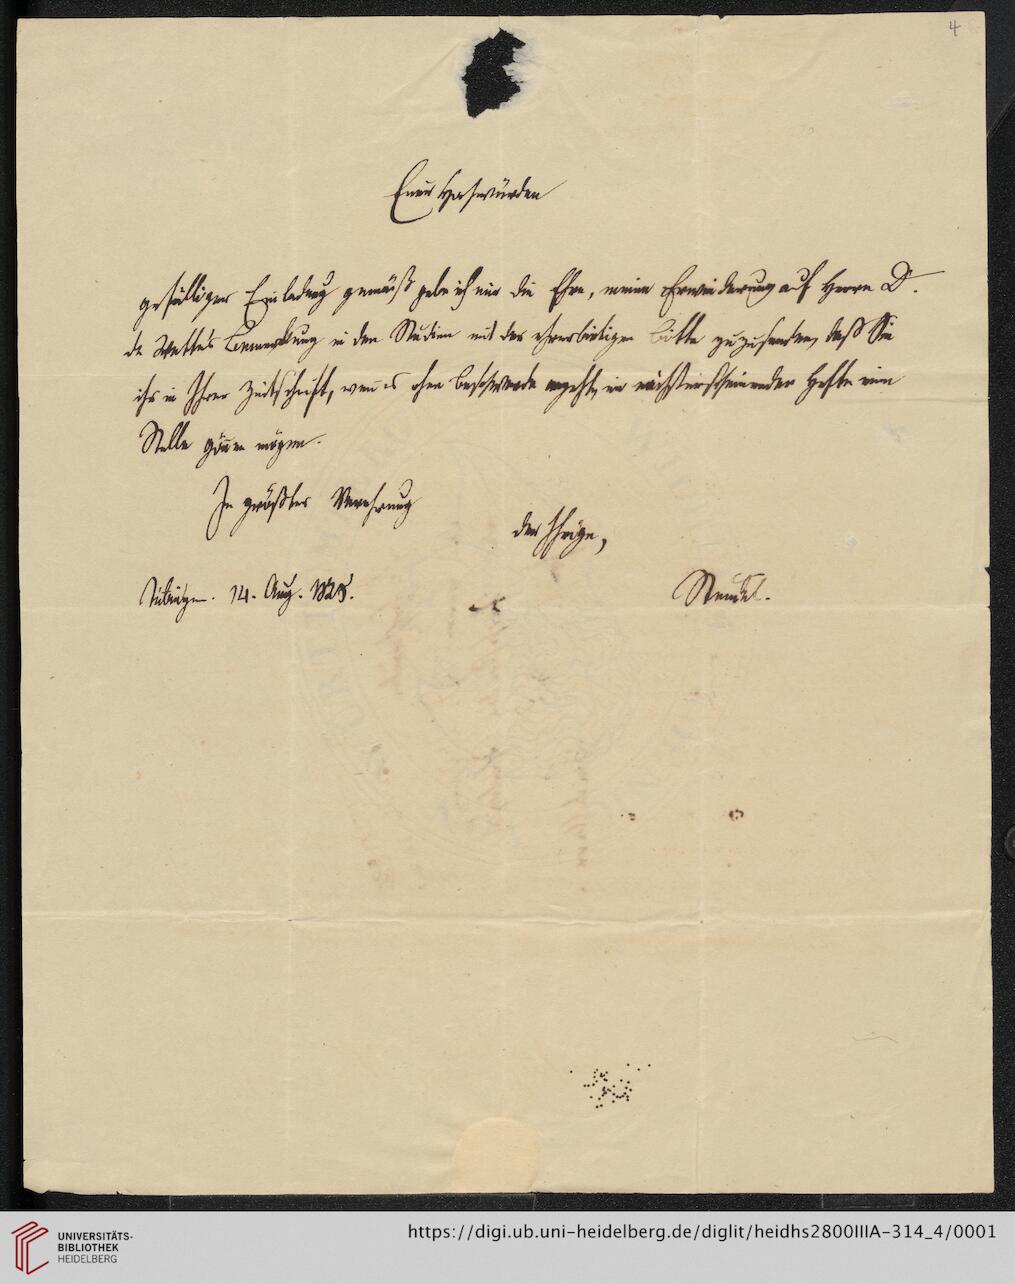 4
Euer Hochwürden
gefälliger Einladung gemäß gebe ich mir die Ehre, meine Erwiederung auf Herrn D.
de Wettes Bemerkung in den Studien mit der ehrerbietigen Bitte zuzusenden, daß Sie
ihr in Ihrer Zeitschrift, wenn es ohne Beschwerde angeht, im nächsterscheinenden Hefte eine
Stelle gönnen mögen.
In größter Verehrung
der Ihrige,
Tübingen. 14. Aug. 1828.
Steudel.
UNIVERSITÄTS-
BIBLIOTHEK
HEIDELBERG
https://digi.ub.uni-heidelberg.de/diglit/heidhs2800IIIA-314_4/0001